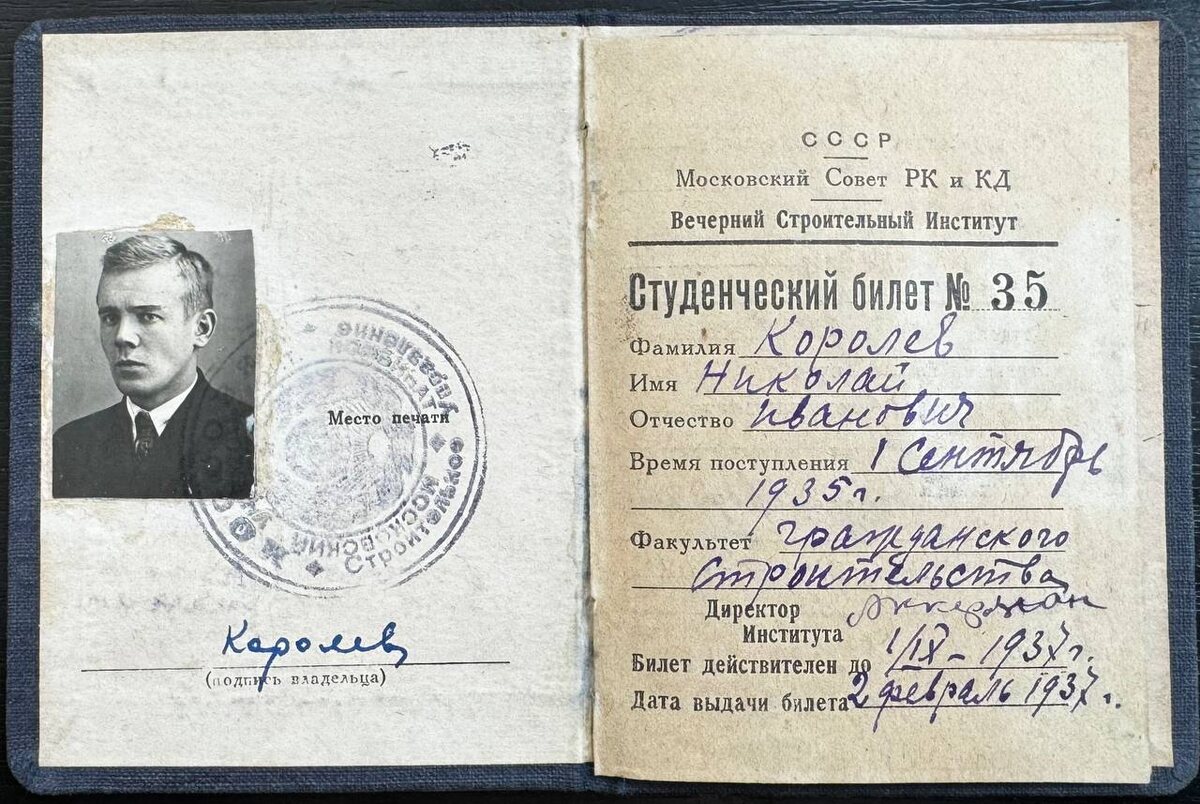 Место печати
Строительное
Управление
МОСКОВСКИЙ
Королев
(подпись владельца)
СССР
Московский Совет РК и КД
Вечерний Строительный Институт
Студенческий билет № 35
Фамилия Королев
Имя Николай
Отчество Иванович
Время поступления 1 Сентябрь
1935 г.
Факультет Гражданского
Строительства
Директор Аккерман
Института
Билет действителен до 1/IX - 1937 г.
Дата выдачи билета 2 февраль 1937 г.